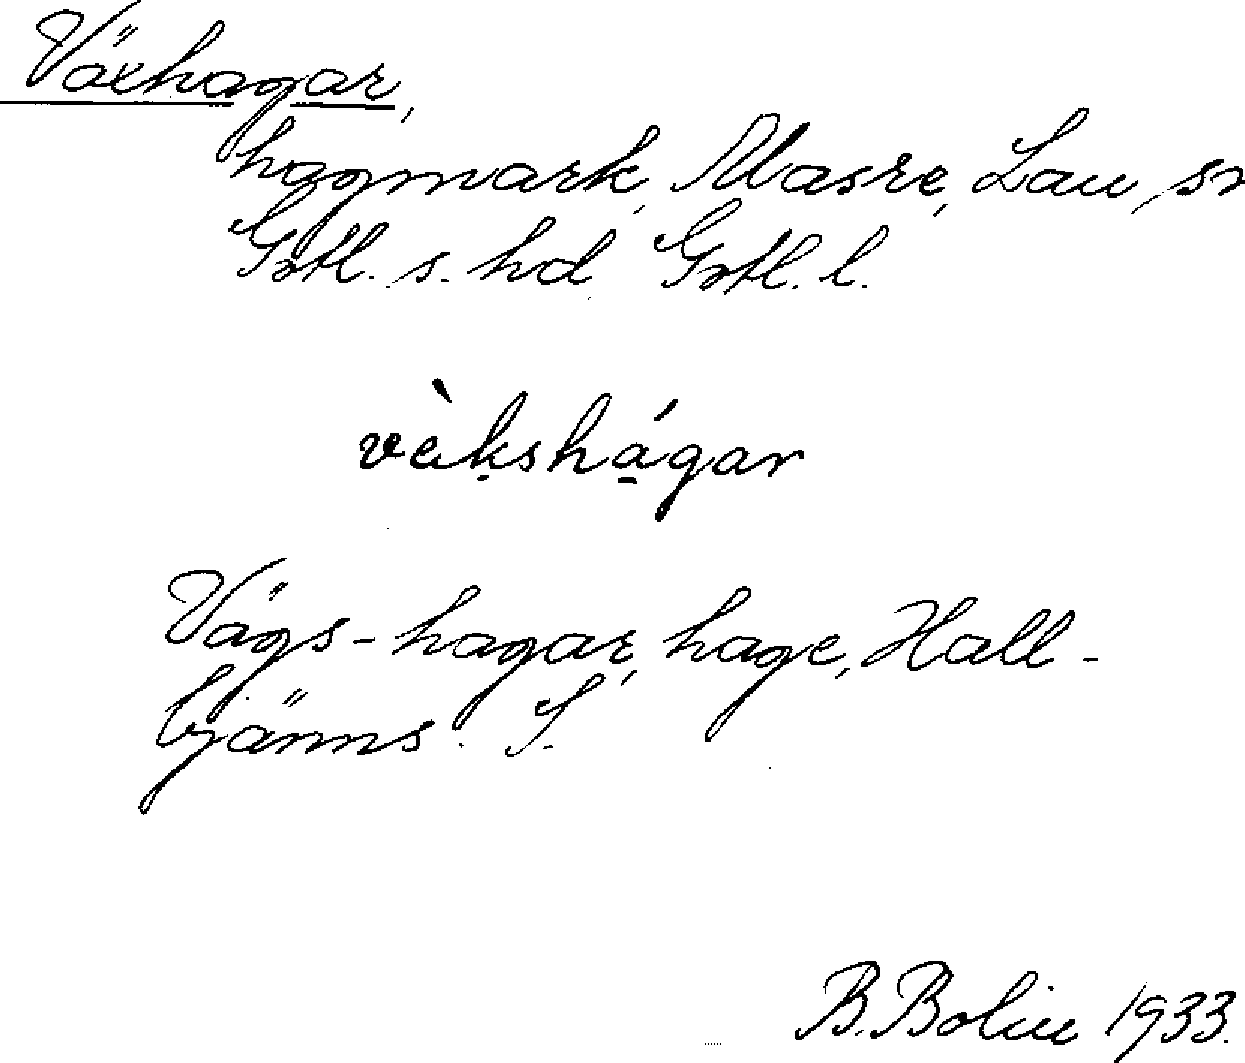 Växhagar,
hagmark, Masre, Lau sn
Gotl. s. hd, Gotl. l.
vàkshágar
Vägs-hagar, hage, Hall-
bjänns. S.
B. Bolin 1933.